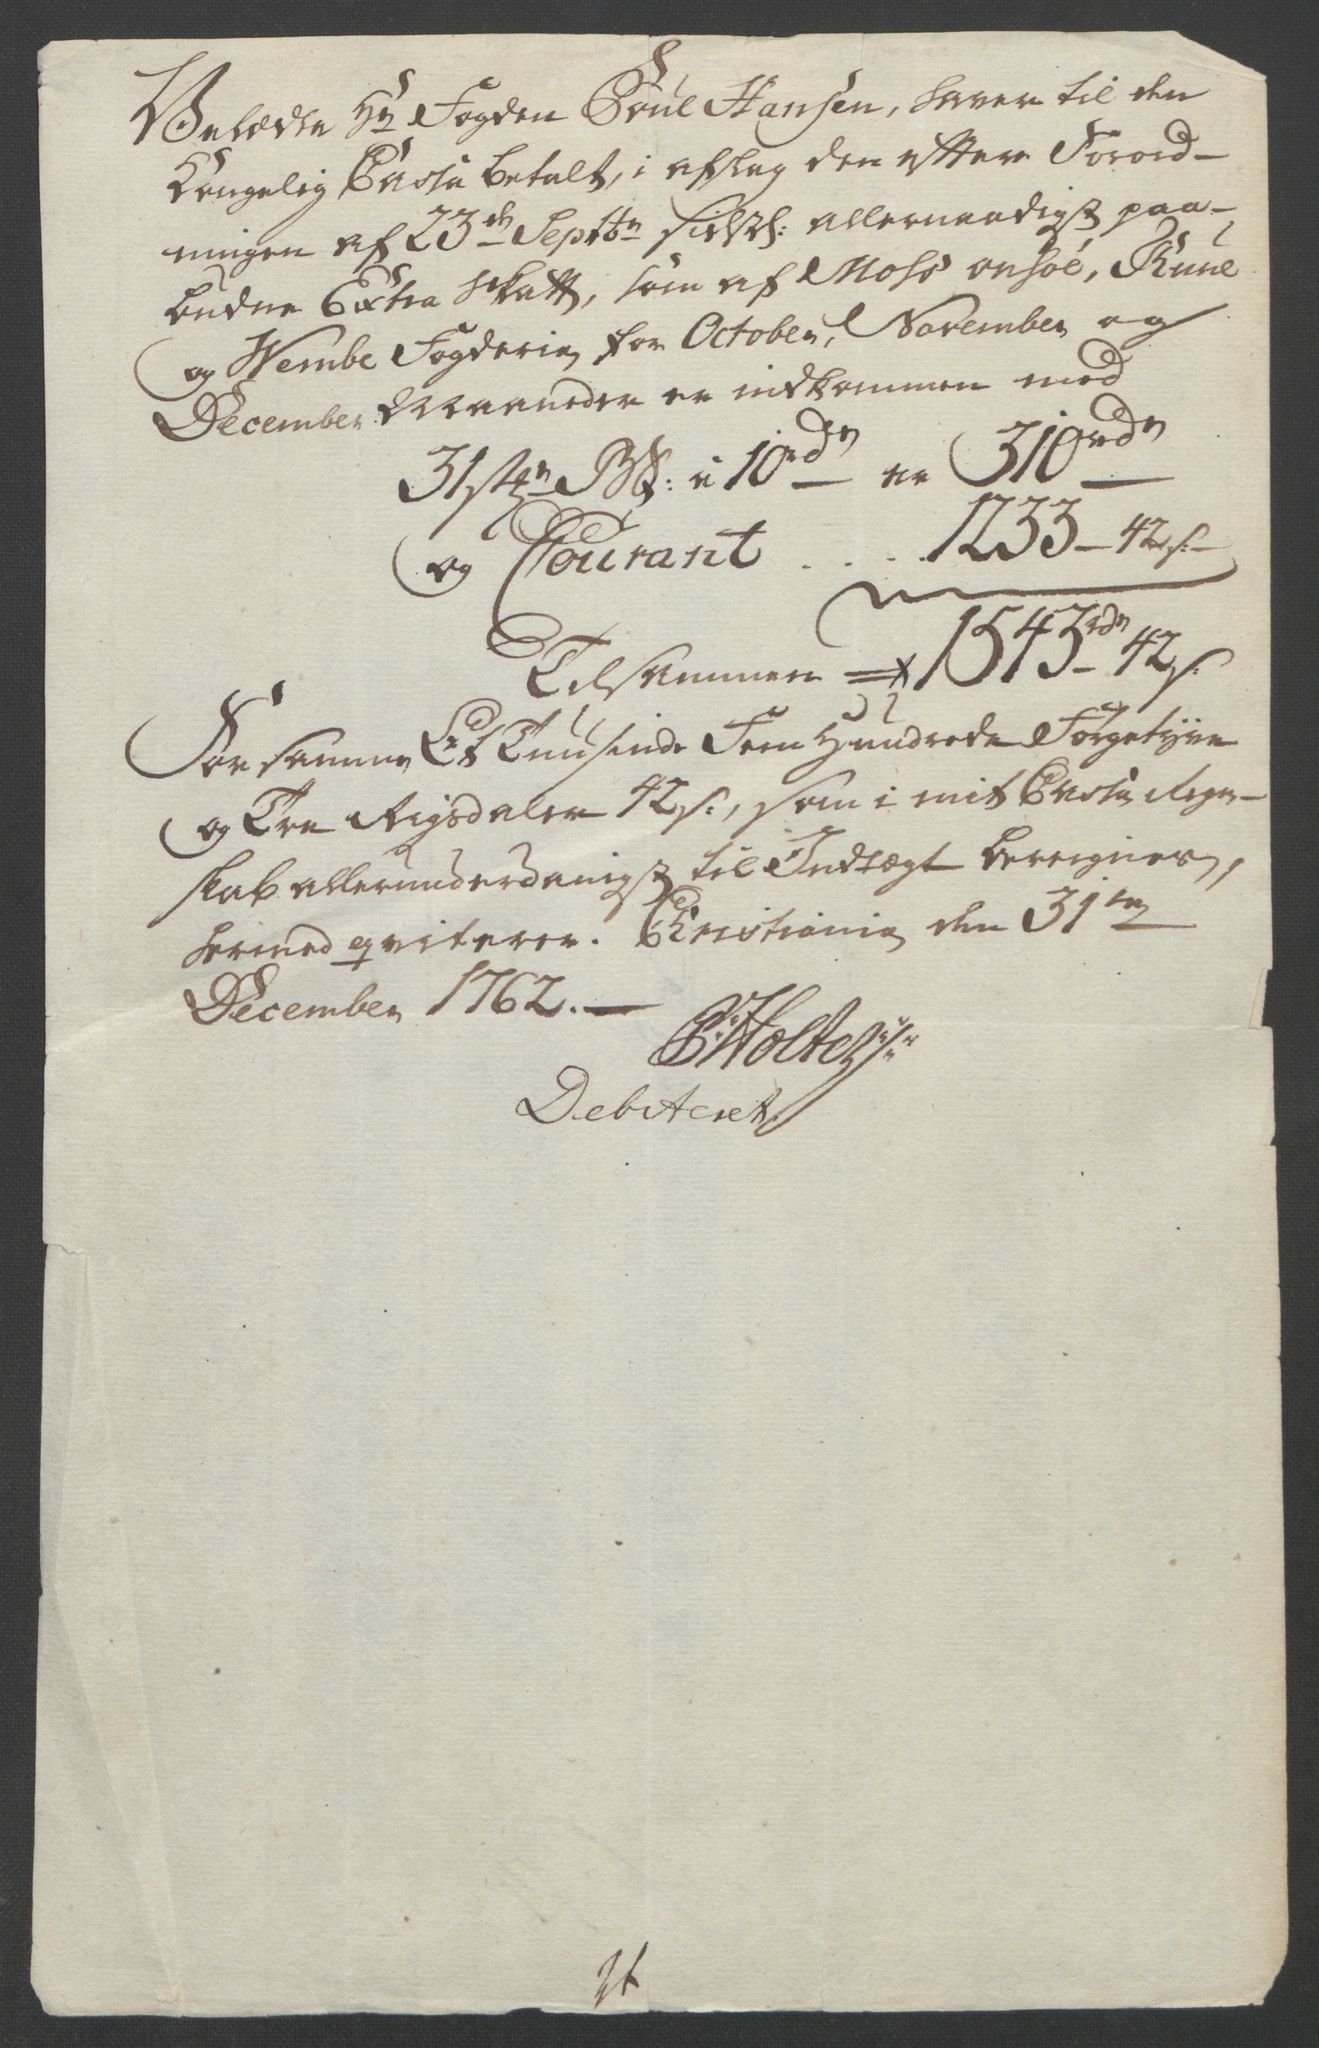 Velædle Hr Fogden Poul Hansen, haver til den
Kongelig Cassa betalt, i afslag den efter Forord-
ningen af 23de Septbr sidstl: allernaadigst paa-
budne Extra Skatt, som af Moss onsöe, Thune
og Wembe Fogderie for October, November og
December Maaneder er indkommen med
31 stk B: a 10rdr er 310rdr
og Courant . . . . 1233 – 42s:
Tilsammen 1543rdr – 42s:
For samme Et Tusinde Fem Hundrede Förgetyve
og Tre Rigsdaler 42s:, som i mit Cassa Regn-
skab allerunderdanigst til Indtægt beregnes,
hermed qviterer. Christiania den 31te
December 1762. –
P: Holter
Debiteret